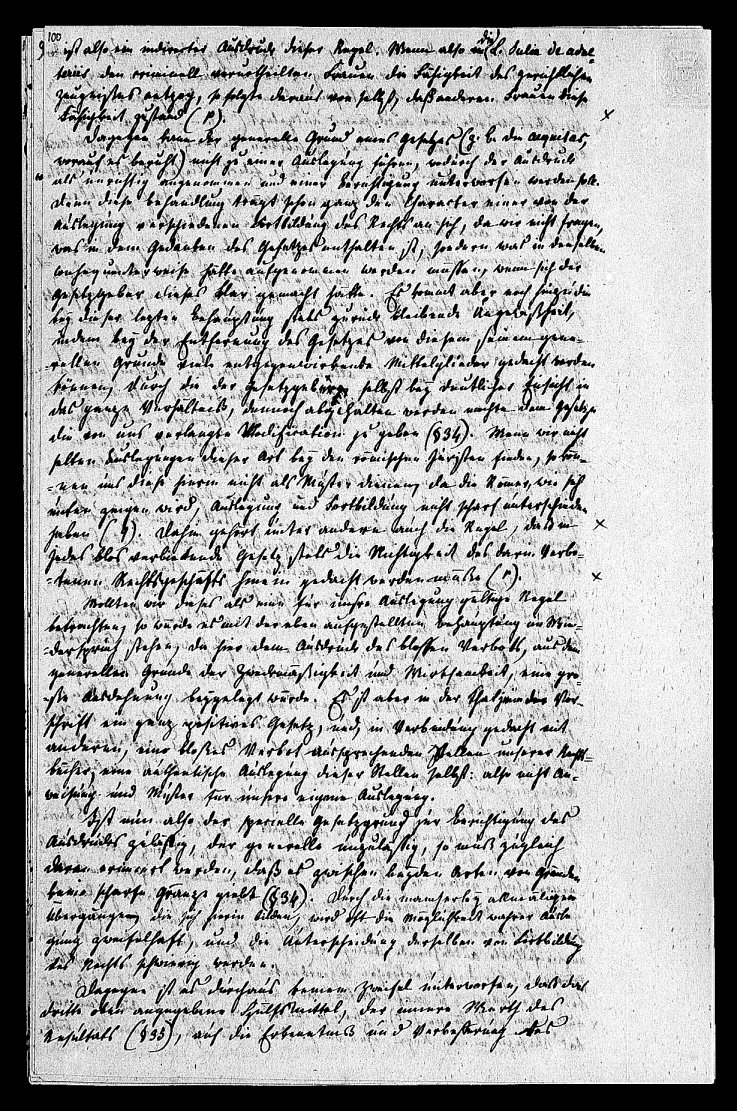 100
ist also ein indirecter Ausdruck dieser Regel. Wenn also die L. Julia de adul-
teriis den criminell verurtheilten Frauen die Fähigkeit des gerichtlichen
Zeugnisses entzog, so folgte daraus von selbst, daß anderen Frauen diese
Fähigkeit zustand (p).
Dagegen kann der generelle Grund eines Gesetzes (z. B. die aequitas,
worauf es beruht) nicht zu einer Auslegung führen, wodurch der Ausdruck
als unrichtig angenommen und einer Berichtigung unterworfen werden soll.
Denn diese Behandlung trägt schon ganz den Character einer von der
Auslegung verschiedenen Fortbildung des Rechts an sich, da wir nicht fragen,
was in dem Gedanken des Gesetzes enthalten ist, sondern was in denselben
consequenterweise hätte aufgenommen werden müssen, wenn sich der
Gesetzgeber dieses klar gemacht hätte. Es kommt aber noch hinzu die
bey dieser letzten Behauptung stets zurück bleibende Ungewißheit,
indem bey der Entfernung des Gesetzes von diesem seinem gene-
rellen Grunde viele entgegenwirkende Mittelglieder gedacht werden
können, durch die der Gesetzgeber selbst bey deutlicher Einsicht in
das ganze Verhältniß, dennoch abgehalten werden mochte dem Gesetze
die von uns verlangte Modification zu geben (§34). Wenn wir nicht
selten Auslegungen dieser Art bey den römischen Juristen finden, so kön-
nen uns diese hierin nicht als Muster dienen, da die Römer, wie sich
unten zeigen wird, Auslegung und Fortbildung nicht scharf unterschieden
haben (q). Dahin gehört unter andern auch die Regel, daß in
jedes blos verbietende Gesetz stets die Nichtigkeit des darin verbo-
tenen Rechtsgeschäfts hinein gedacht werden müsse (r).
Wollten wir dieses als eine für unsre Auslegung gültige Regel
betrachten, so würde es mit der eben aufgestellten Behauptung im Wi-
derspruch stehen, da hier dem Ausdruck des bloßen Verbots, aus dem
generellen Grunde der Zweckmäßigkeit und Wirksamkeit, eine gro-
ße Ausdehnung beygelegt würde. Es ist aber in der That jene Vor-
schrift ein ganz positives Gesetz, und, in Verbindung gedacht mit
anderen, eine bloßes Verbot aussprechenden Stellen unserer Rechts-
bücher, eine authentische Auslegung dieser Stellen selbst: also nicht An-
weisung und Muster für unsere eigene Auslegung.
Ist nun also der specielle Gesetzgrund zur Berichtigung des
Ausdrucks zulässig, der generelle unzulässig, so muß zugleich
daran erinnert werden, daß es zwischen beyden Arten von Gründen
keine scharfe Gränze giebt (§34). Durch die mancherley allmäligen
Übergänge, die sich hierin bilden, wird oft die Möglichkeit wahrer Ausle-
gung zweifelhaft, und die Unterscheidung derselben von Fortbildung
des Rechts schwierig werden.
Dagegen ist es durchaus keinem Zweifel unterworfen, daß das
dritte oben angegebene Hülfsmittel, der innere Werth des
Resultats (§35), auf die Erkenntniß und Verbesserung des